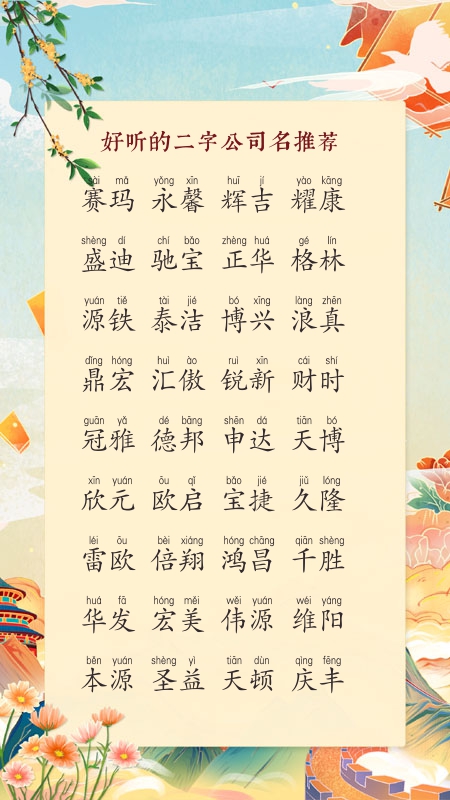 好听的二字公司名推荐
sài mǎ yǒng xīn huī jí yào kāng
赛玛 永馨 辉吉 耀康
shèng dí chí bǎo zhèng huá gé lín
盛迪 驰宝 正华 格林
yuán tiě tài jié bó xīng làng zhēn
源铁 泰洁 博兴 浪真
dǐng hóng huì ào ruì xīn cái shí
鼎宏 汇傲 锐新 财时
guān yǎ dé bāng shēn dá tiān bó
冠雅 德邦 申达 天博
xīn yuán ōu qǐ bǎo jié jiǔ lóng
欣元 欧启 宝捷 久隆
léi ōu bèi xiáng hóng chāng qiān shèng
雷欧 倍翔 鸿昌 千胜
huá fā hóng měi wěi yuán wéi yáng
华发 宏美 伟源 维阳
běn yuán shèng yì tiān dùn qìng fēng
本源 圣益 天顿 庆丰